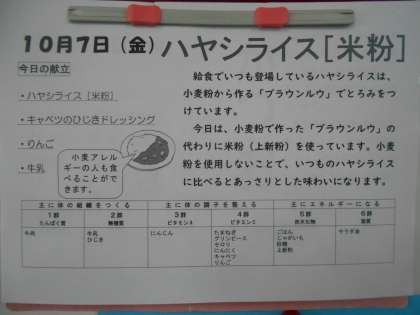 10月7日(金) ハヤシライス[米粉]
今日の献立
・ハヤシライス[米粉]
・キャベツのひじきドレッシング
・りんご
・牛乳
小麦アレル
ギーの人も食
べることがで
きます。
給食でいつも登場しているハヤシライスは、
小麦粉から作る「ブラウンルウ」でとろみをつ
けています。
今日は、小麦粉で作った「ブラウンルウ」の
代わりに米粉(上新粉)を使っています。小麦
粉を使用しないことで、いつものハヤシライス
に比べるとあっさりとした味わいになります。
主に体の組織をつくる 主に体の調子を整える 主にエネルギーになる
1群 2群 3群 4群 5群 6群
たんぱく質 無機質 ビタミンA ビタミンC 炭水化物 脂質
牛乳 牛乳 にんじん たまねぎ ごはん サラダ油
ひじき グリンピース じゃがいも
セロリ 砂糖
にんにく 上新粉
キャベツ
りんご